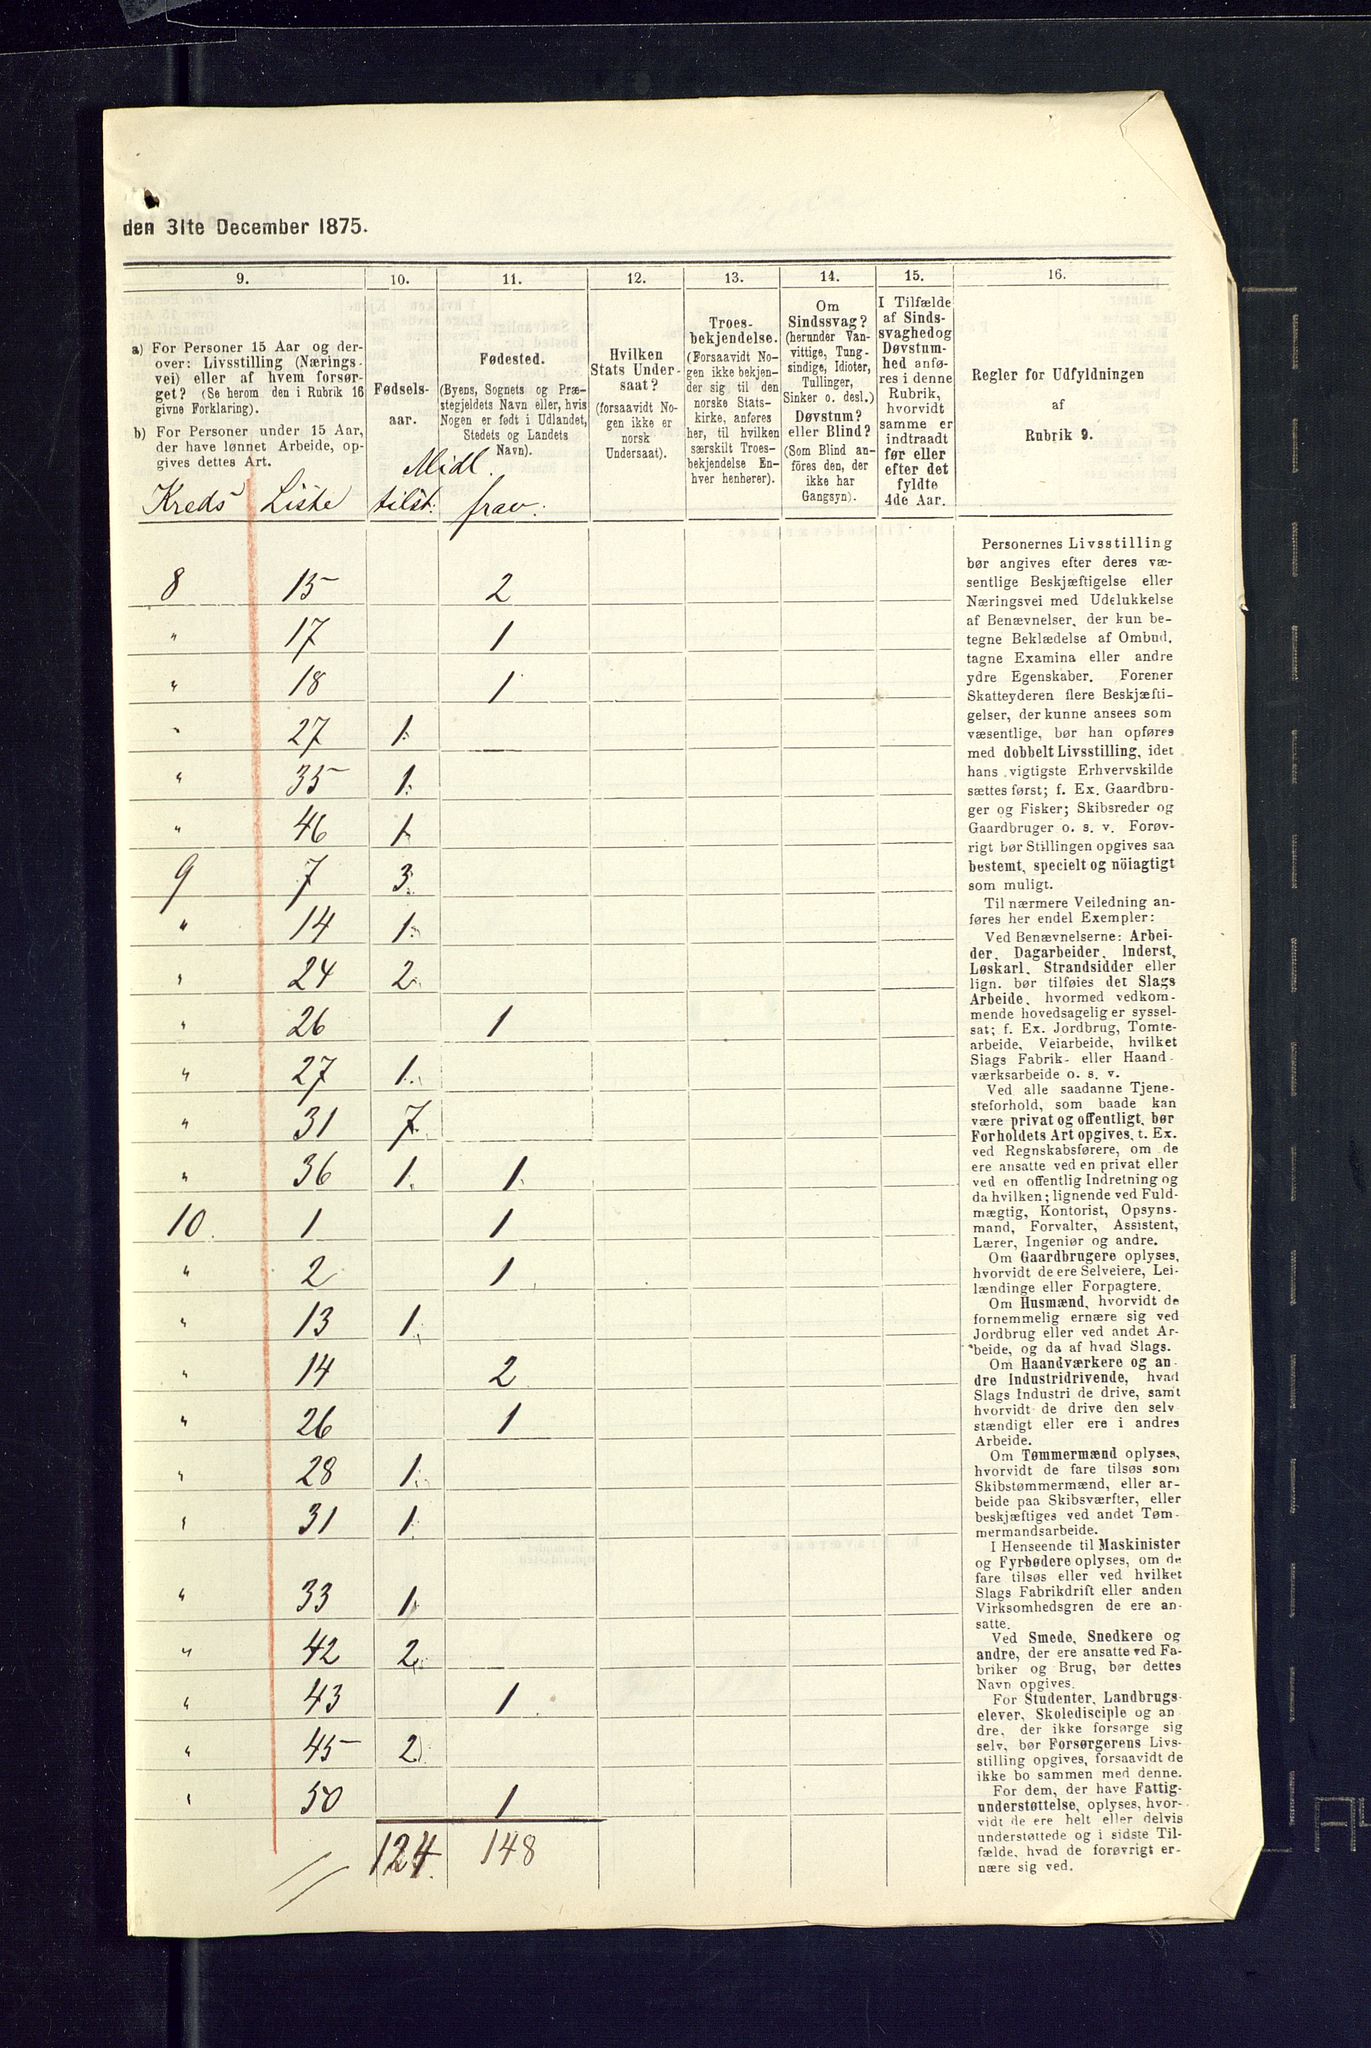 den 31te December 1875.
9. 10. 11. 12. 13. 14. 15. 16.
a) For Personer 15 Aar og der-
over: Livsstilling (Nærings-
vei) eller af hvem forsør-
get? (Se herom den i Rubrik 16
givne Forklaring).
b) For Personer under 15 Aar,
der have lønnet Arbeide, op-
gives dettes Art.
Fødsels-
aar.
Fødested.
(Byens, Sognets og Præ-
stegjeldets Navn eller, hvis
Nogen er født i Udlandet,
Stedets og Landets
Navn).
Hvilken
Stats Under-
saat?
(forsaavidt No-
gen ikke er
norsk
Undersaat).
Troes-
bekjendelse.
(Forsaavidt No-
gen ikke bekjen-
der sig til den
norske Stats-
kirke, anføres
her, til hvilken
særskilt Troes-
bekjendelse En-
hver henhører).
Om
Sindssvag?
(herunder Van-
vittige, Tung-
sindige, Idioter,
Tullinger,
Sinker o. desl.)
Døvstum?
eller Blind?
(Som Blind an-
føres den, der
ikke har
Gangsyn).
I Tilfælde
af Sinds-
svaghedog
Døvstum-
hed anfø-
res i denne
Rubrik,
hvorvidt
samme er
indtraadt
før eller
efter det
fyldte
4de Aar.
Regler for Udfyldningen
af
Rubrik 9.
Midl.
Kreds Liste tilst. frav.
8 15 2
" 17 1
" 18 1
" 27 1.
" 35 1.
" 46 1.
9 7 3.
" 14 1.
" 24 2.
" 26 1
" 27 1.
" 31 7.
" 36 1. 1.
10. 1 1
" 2 1
" 13 1.
" 14 2
" 26 1
" 28 1.
" 31 1.
" 33 1.
" 42 2.
" 43 1.
" 45 2.
" 50 1
124. 148
Personernes Livsstilling
bør angives efter deres væ-
sentlige Beskjæftigelse eller
Næringsvei med Udelukkelse
af Benævnelser, der kun be-
tegne Beklædelse af Ombud,
tagne Examina eller andre
ydre Egenskaber. Forener
Skatteyderen flere Beskjæfti-
gelser, der kunne ansees som
væsentlige, bør han opføres
med dobbelt Livsstilling, idet
hans vigtigste Erhvervskilde
sættes først; f. Ex. Gaardbru-
ger og Fisker; Skibsreder og
Gaardbruger o. s. v. Forøv-
rigt bør Stillingen opgives saa
bestemt, specielt og nöiagtigt
som muligt.
Til nærmere Veiledning an-
føres her endel Exempler:
Ved Benævnelserne: Arbei-
der, Dagarbeider, Inderst,
Løskarl, Strandsidder eller
lign. bør tilføies det Slags
Arbeide, hvormed vedkom-
mende hovedsagelig er syssel-
sat; f. Ex. Jordbrug, Tomte-
arbeide, Veiarbeide, hvilket
Slags Fabrik- eller Haand-
værksarbeide o. s. v.
Ved alle saadanne Tjene-
steforhold, som baade kan
være privat og offentligt, bør
Forholdets Art opgives, t. Ex.
ved Regnskabsførere, om de
ere ansatte ved en privat eller
ved en offentlig Indretning og
da hvilken; lignende ved Fuld-
mægtig, Kontorist, Opsyns-
mand, Forvalter, Assistent,
Lærer, Ingeniør og andre.
Om Gaardbrugere oplyses,
hvorvidt de ere Selveiere, Lei-
lændinge eller Forpagtere.
Om Husmænd, hvorvidt de
fornemmelig ernære sig ved
Jordbrug eller ved andet Ar-
beide, og da af hvad Slags.
Om Haandværkere og an-
dre Industridrivende, hvad
Slags Industri de drive, samt
hvorvidt de drive den selv-
stændigt eller ere i andres
Arbeide.
Om Tømmermænd oplyses,
hvorvidt de fare tilsøs som
Skibstømmermænd, eller ar-
beide paa Skibsværfter, eller
beskjæftiges ved andet Tøm-
mermandsarbeide.
I Henseende til Maskinister
og Fyrbødere oplyses, om de
fare tilsøs eller ved hvilket
Slags Fabrikdrift eller anden
Virksomhedsgren de ere an-
satte.
Ved Smede, Snedkere og
andre, der ere ansatte ved Fa-
briker og Brug, bør dettes
Navn opgives.
For Studenter, Landbrugs-
elever, Skoledisciple og an-
dre, der ikke forsørge sig
selv, bør Forsørgerens Livs-
stilling opgives, forsaavidt de
ikke bo sammen med denne.
For dem, der have Fattig-
understøttelse, oplyses, hvor-
vidt de ere helt eller delvis
understøttede og i sidste Til-
fælde, hvad de forøvrigt er-
nære sig ved.